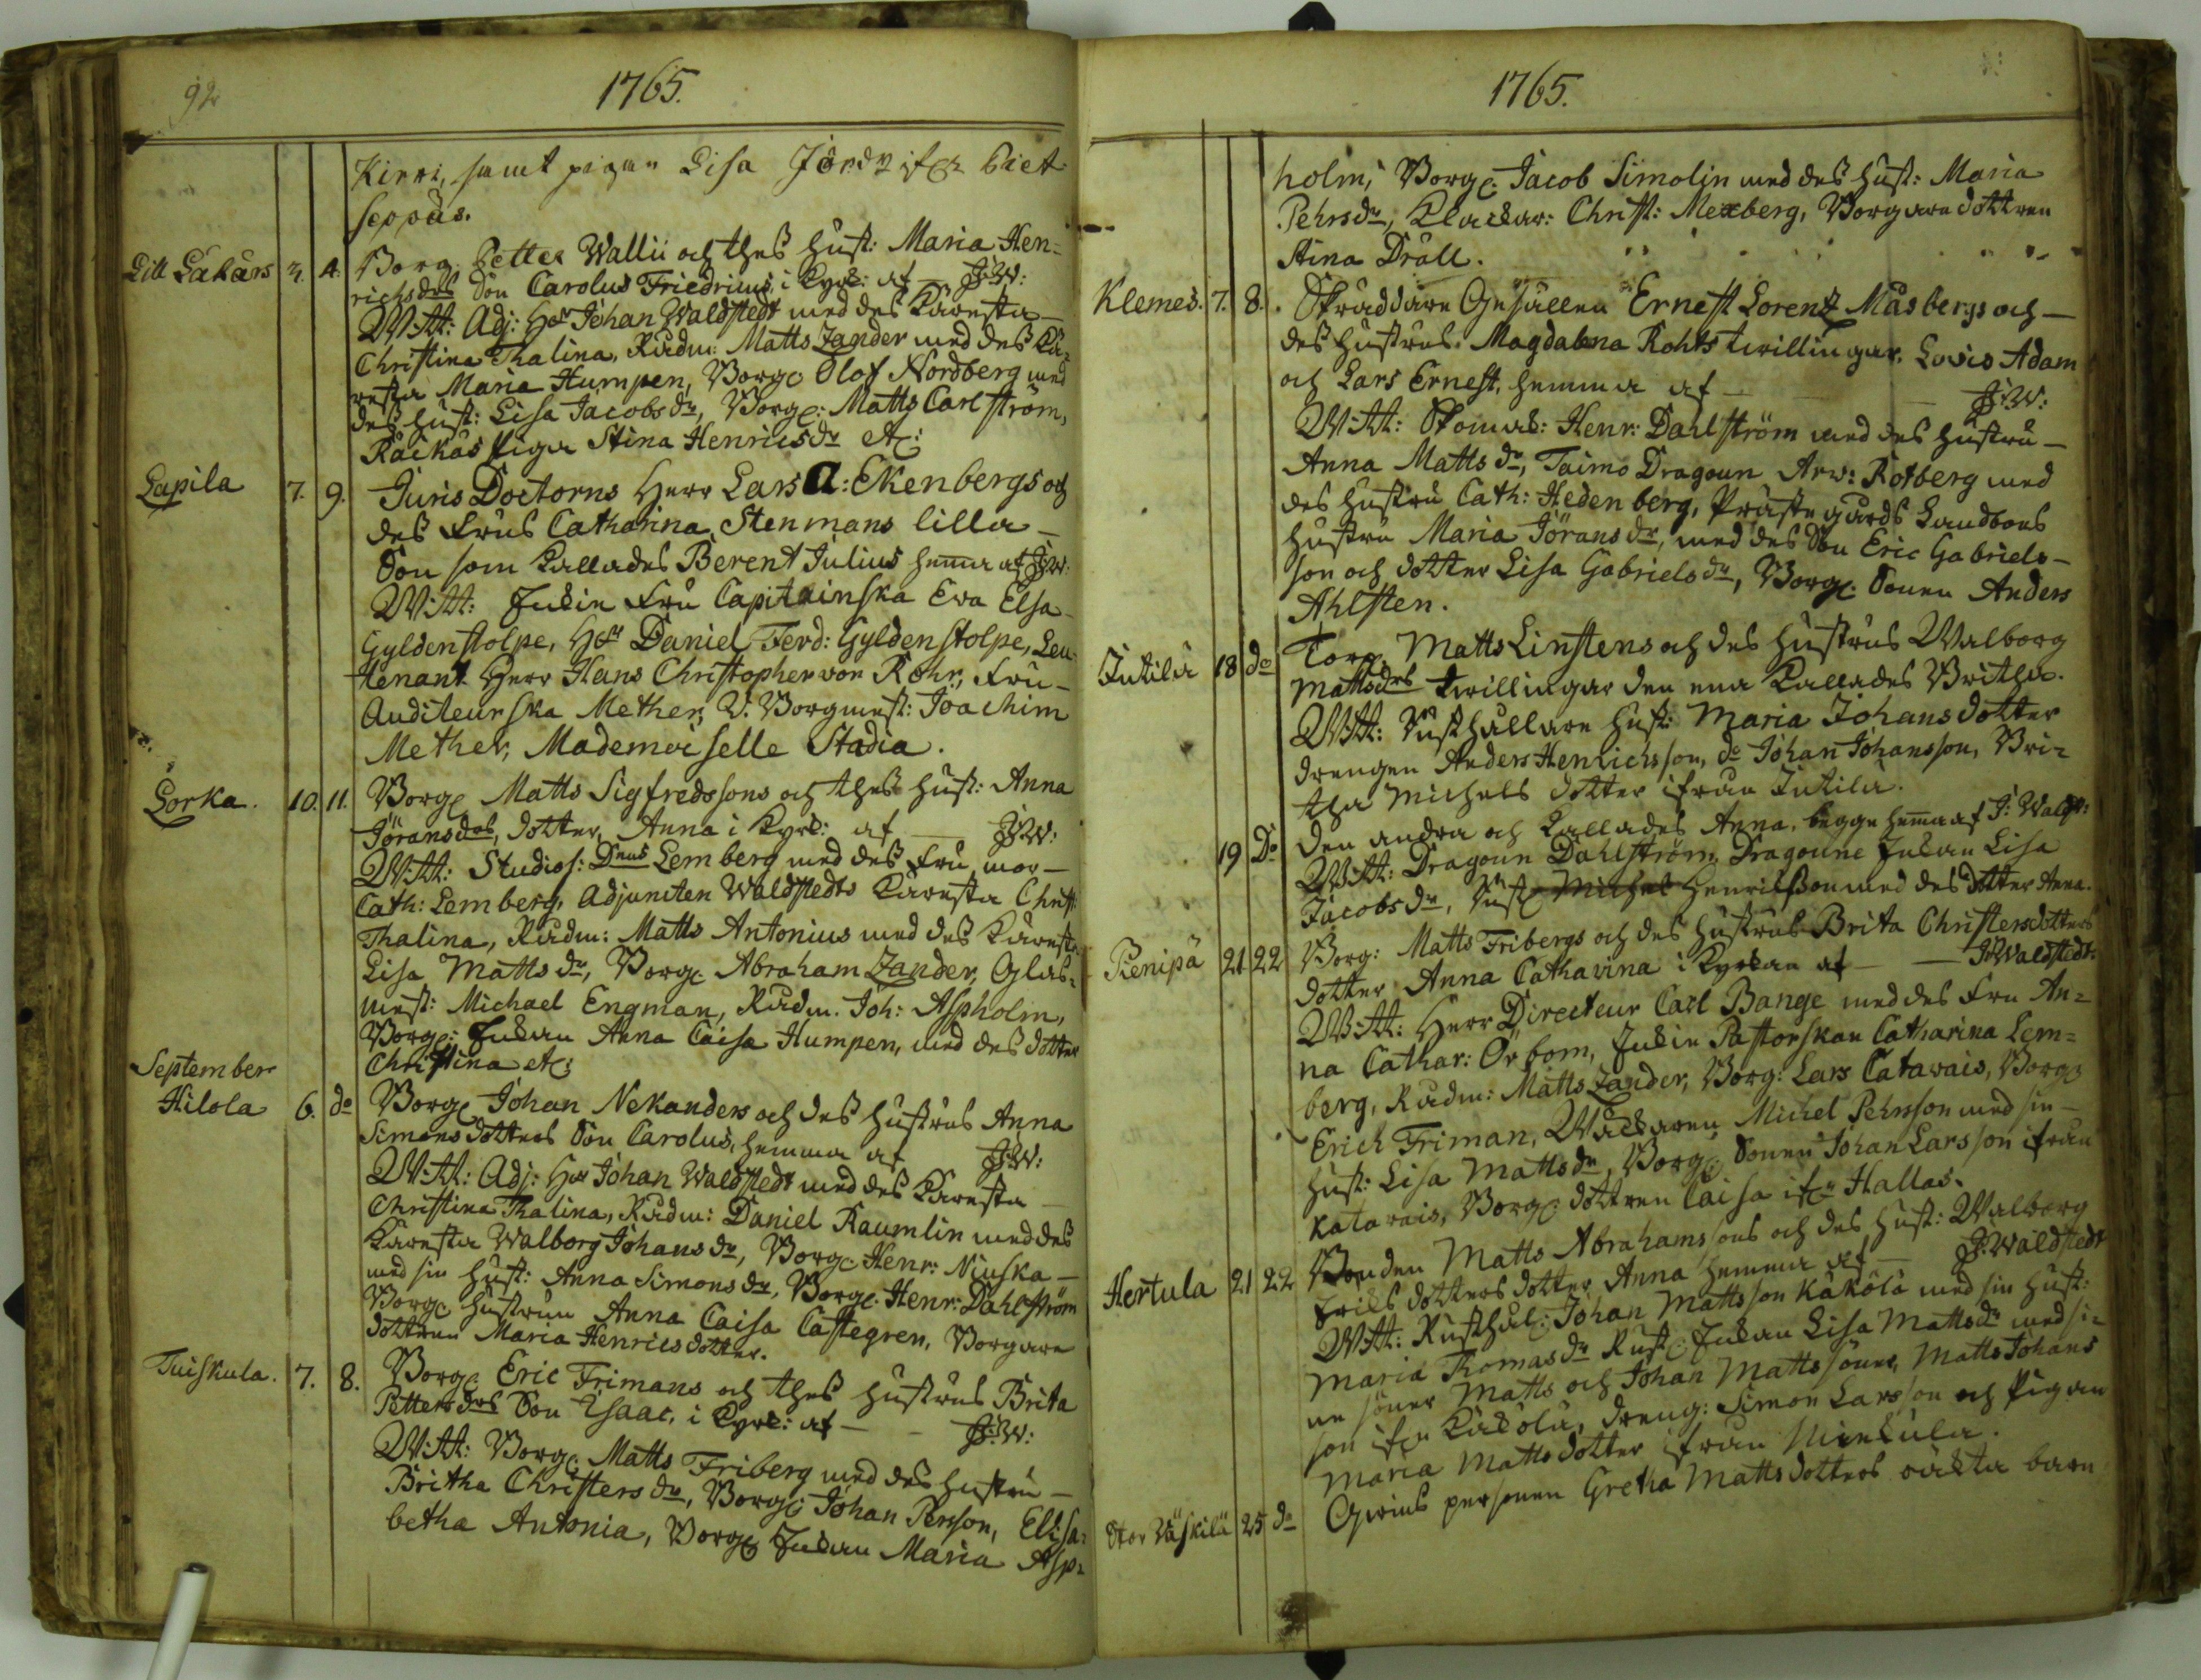 92
1765.
Kirri, samt pigan Lisa Jör
seppäs.
Lill Lakars 3. 4. Borg. Petter Wallii och thes Hust: Maria Hen=
richsdrs Son Carolus Friedricus, i Kyrk: af — J:W:
Witt: Adj: Hr Johan Waldstedt med des Käresta —
Christina Thalina, Rådm: Matts Zander med des Kä=
resta Maria Humpen, Borg: Olof Nordberg med
des Hust: Lisa Jacobs dr, Borg: Matts Carlström,
Raickas Piga Stina Henricsdr etc:
Lapila 7. 9. Juris Doctorns Herr Lars A: Ekenbergs och
des Frus Catharina Stenmans lilla —
Son som kallades Berent Julius hemma af J:W:
Witt: Enkie Fru Capitainska Eva Elsa
Gyldenstolpe, Hr Daniel Ferd: Gyldenstolpe, Leu
tenant Herr Hans Christopher von Rohr, Fru —
Auditeurska Mether, V. Borgmest: Joachim
Mether, Mademoiselle Stadia.
Lorka. 10. 11. Borg: Matts Sigfredssons och thes Hust: Anna
Jöransdrs, dotter Anna i Kyrk: af — J:W:
Witt: Studios: Dnus Lemberg med des Fru mor —
Cath: Lemberg, Adjuncten Waldstedts Käresta Christ:
Thalina, Rådm: Matts Antonius med des Käresta
Lisa Matts dr, Borg: Abraham Zander, Glas=
mest: Michael Engman, Rådm. Joh: Aspholm,
Borg: Enkan Anna Caisa Humpen, med des dotter
Christina etc:
September
Hilola 6. do Borg: Johan Nekanders och des Hustrus Anna
Simonsdotters Son Carolus, hemma af J:W:
Witt: Adj: Hr Johan Waldstedt med des Käresta —
Christina Thalina, Rådm: Daniel Raumlin med des
Käresta Walborg Johans dr, Borg: Henr: Niuska —
med sin Hust: Anna Simons dr, Borg: Henr: Dahlström
Borg: Hustrun Anna Caisa Castegren, Borgare
dottren Maria Henricsdotter.
Tuiskula. 7. 8. Borg: Eric Frimans och thes Hustrus Brita
Pettersdrs Son Isaac, i Kyrk: af — J:W:
Witt: Borg: Matts Friberg med des Hustru —
Britha Christers dr, Borg: Johan Persson, Elisa=
betha Antonia, Borg: Enkan Maria Asp=
1765.
holm, Borg: Jacob Simolin med des Hust: Maria
Pehrsdr, Klackar: Christ: Mexberg, Borgare dottren
Stina Dräll.
Klemes. 7. 8. Skräddare Gesällen Ernest Lorentz Måsbergs och —
des Hustrus Magdalena Rohts twillingar, Lovis Adam
och Lars Ernest, hemma af — J:W:
Witt: Skomak: Henr: Dahlström med des Hustru —
Anna Matts dr, Taimo Dragoun Arw: Rotberg med
des Hustru Cath: Hedenberg, Prästegårds Landbons
Hustru Maria Jörans dr, med des Son Eric Gabriels —
son och dotter Lisa Gabriels dr, Borg: Sonen Anders
Ahlsten.
Jutila 18 do Torp. Matts Linstens och des Hustrus Walborg
Mattsdrs twillingar den ena kallades Britha.
Witt: Rusthållare Hust: Maria Johansdotter
drengen Anders Henrichsson, do Johan Johansson, Bri=
tha Michels dotter ifrån Jutila.
19 Do Den andra och kallades Anna, begge hemma af J: Waldst:
Witt: Dragoun Dahlström, Dragoune Enkan Lisa
Jacobs dr, Rust: Michel Henricsson med des dotter Anna.
Pienipä 21 22 Borg: Matts Fribergs och des Hustrus Brita Christersdotters
dotter Anna Catharina i Kyrkan af — J:Waldstedt.
Witt: Herr Directeur Carl Bange med des Fru An=
na Cathar: Örbom, Enkie Pastorskan Catharina Lem=
berg, Rådm: Matts Zander, Borg: Lars Catavais, Borg:
Erich Friman, Wäckaren Michel Pehrsson med sin —
Hust: Lisa Matts dr, Borg: Sonen Johan Larsson ifrån
Katavais, Borg: dottren Caisa ifrn Hallas.
Hertula 21 22 Bonden Matts Abrahamssons och des Hust: Walborg
Erics dotters dotter Anna hemma af — J:Waldstedt
Witt: Rusthål: Johan Mattsson Käkölä med sin Hust:
Maria Thomas dr Rust: Enkan Lisa Matts dr med si=
ne söner Matts och Johan Mattssöner, Matts Johans
son ifrn Käkölä, dreng: Simon Larsson och Pigan
Maria Matts dotter ifrån Mickula.
Stor Väskilä 25 do personen Gretha Mattsdotters oäkta barn